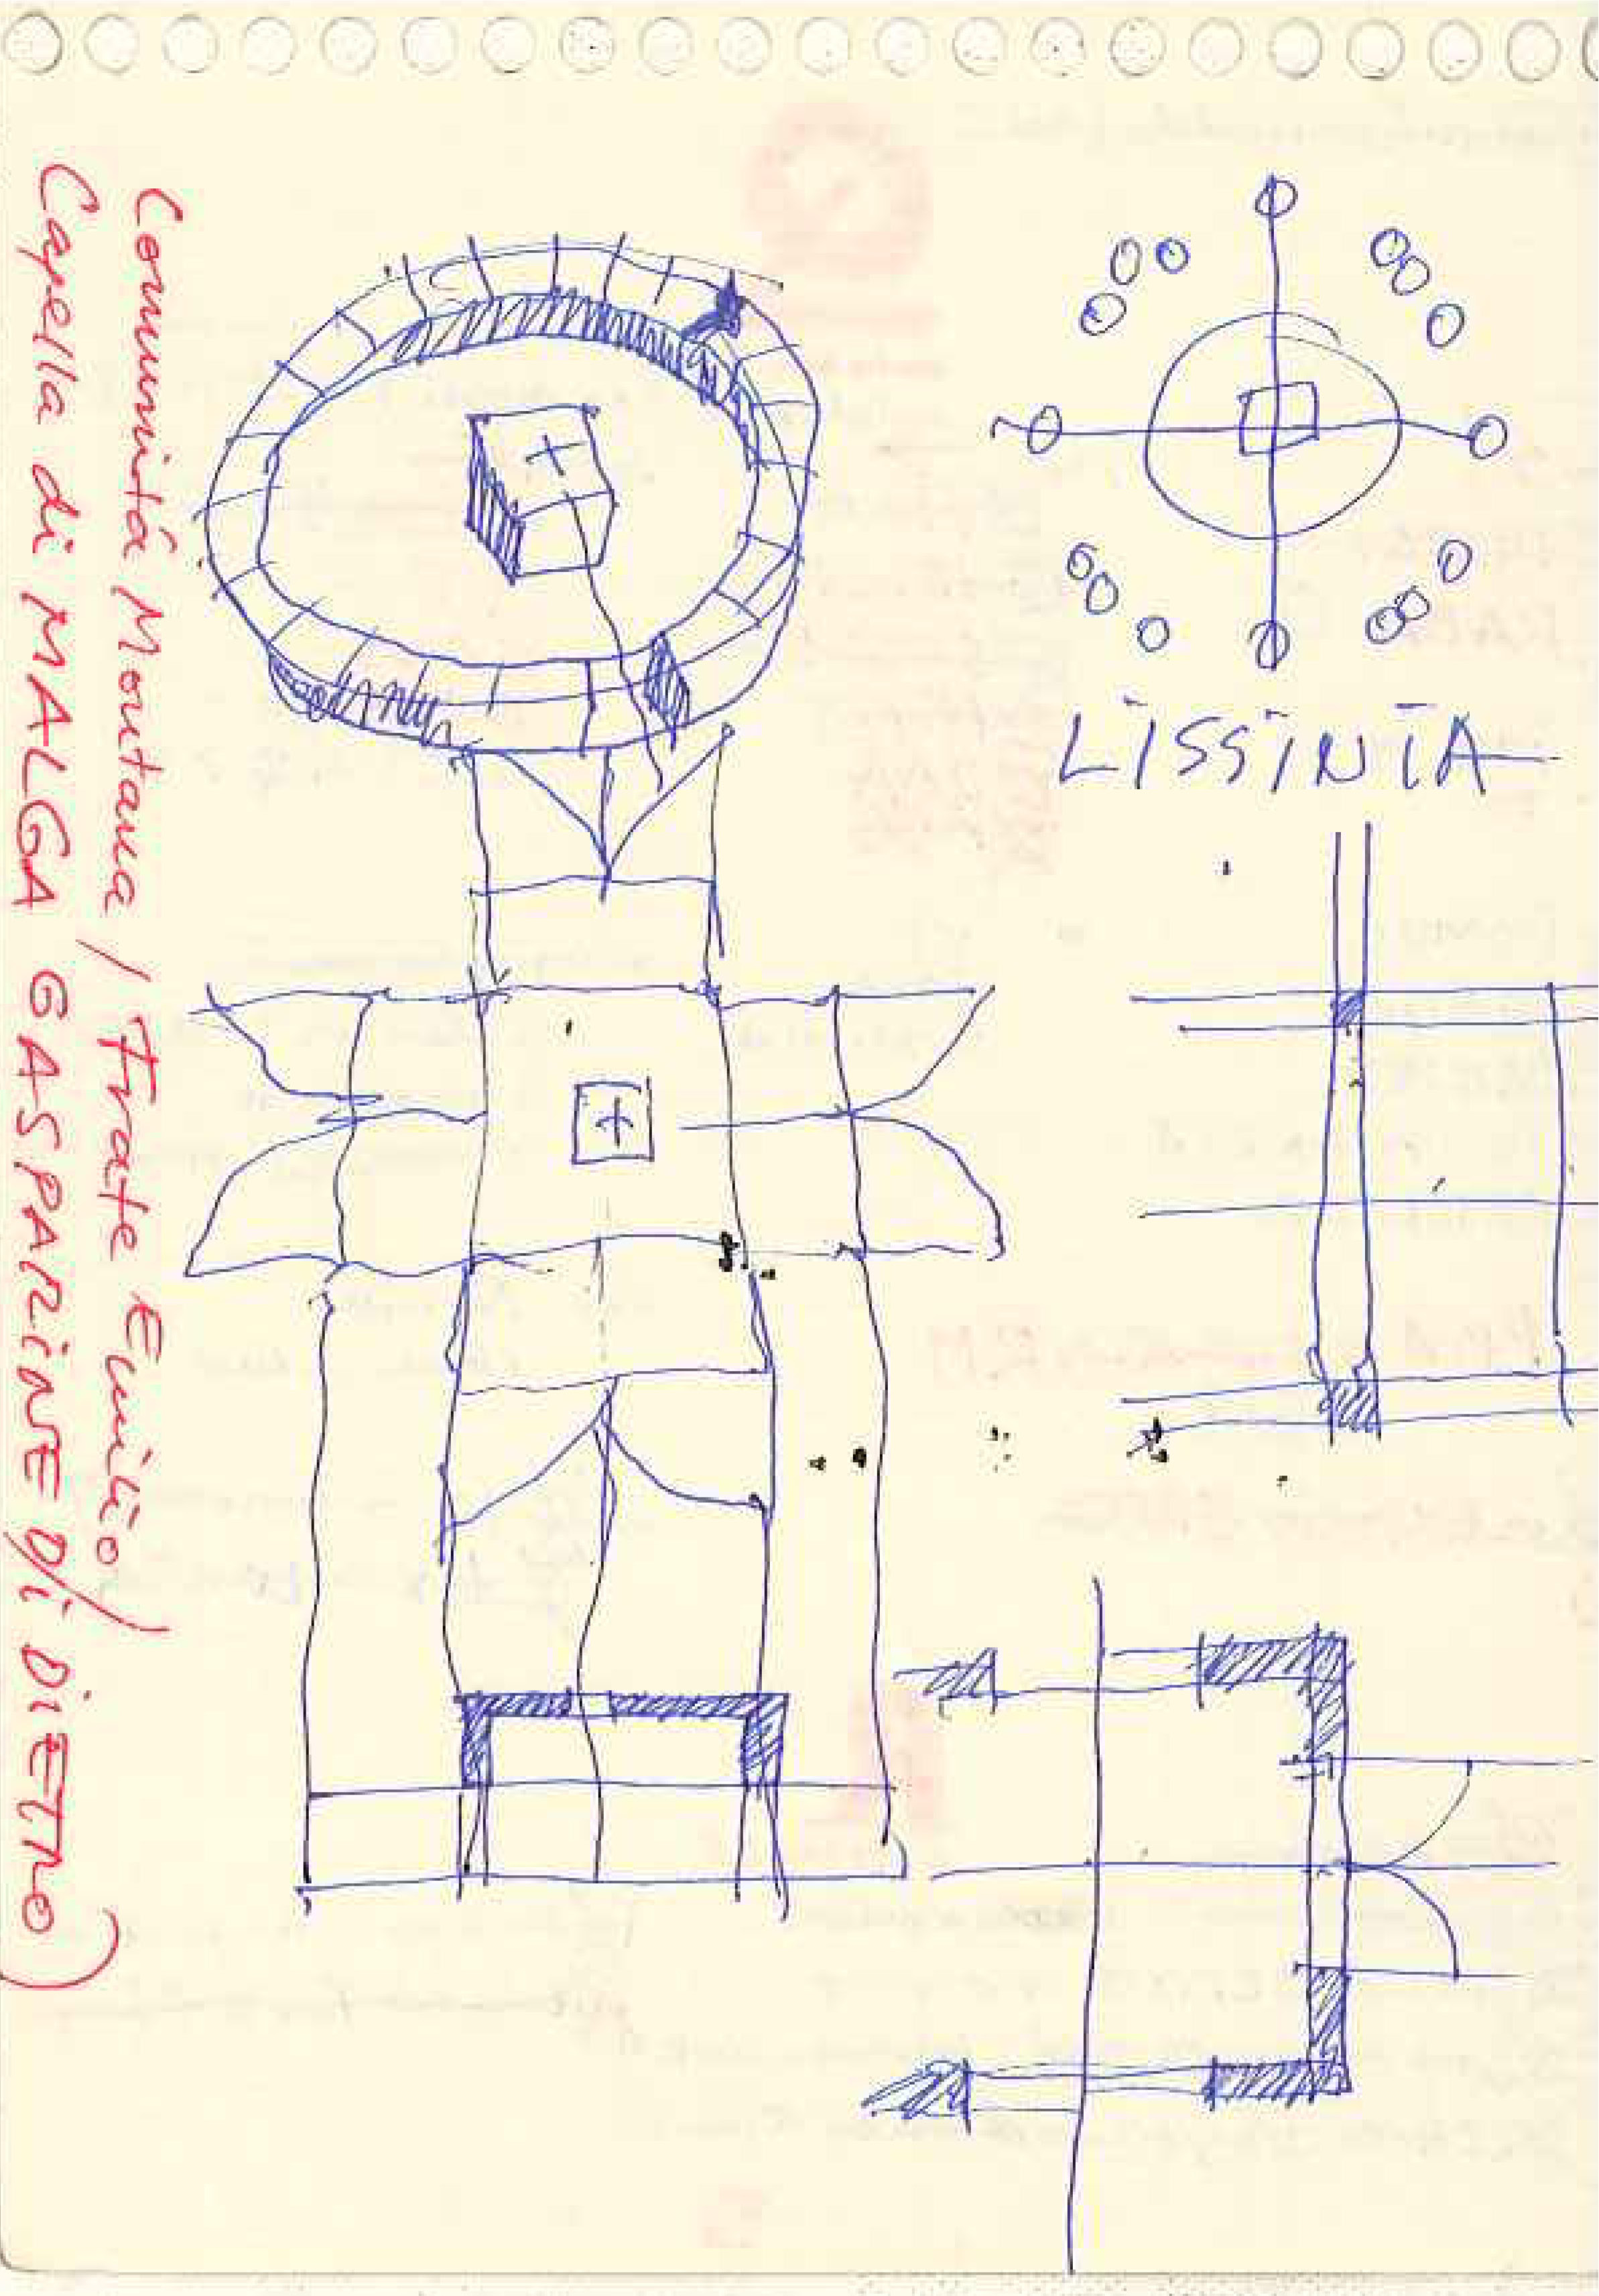 LiSSiNiA
Communitá Montana / Frate Emilio)
Capella di MALGA GASPARiNE di DiETRO)